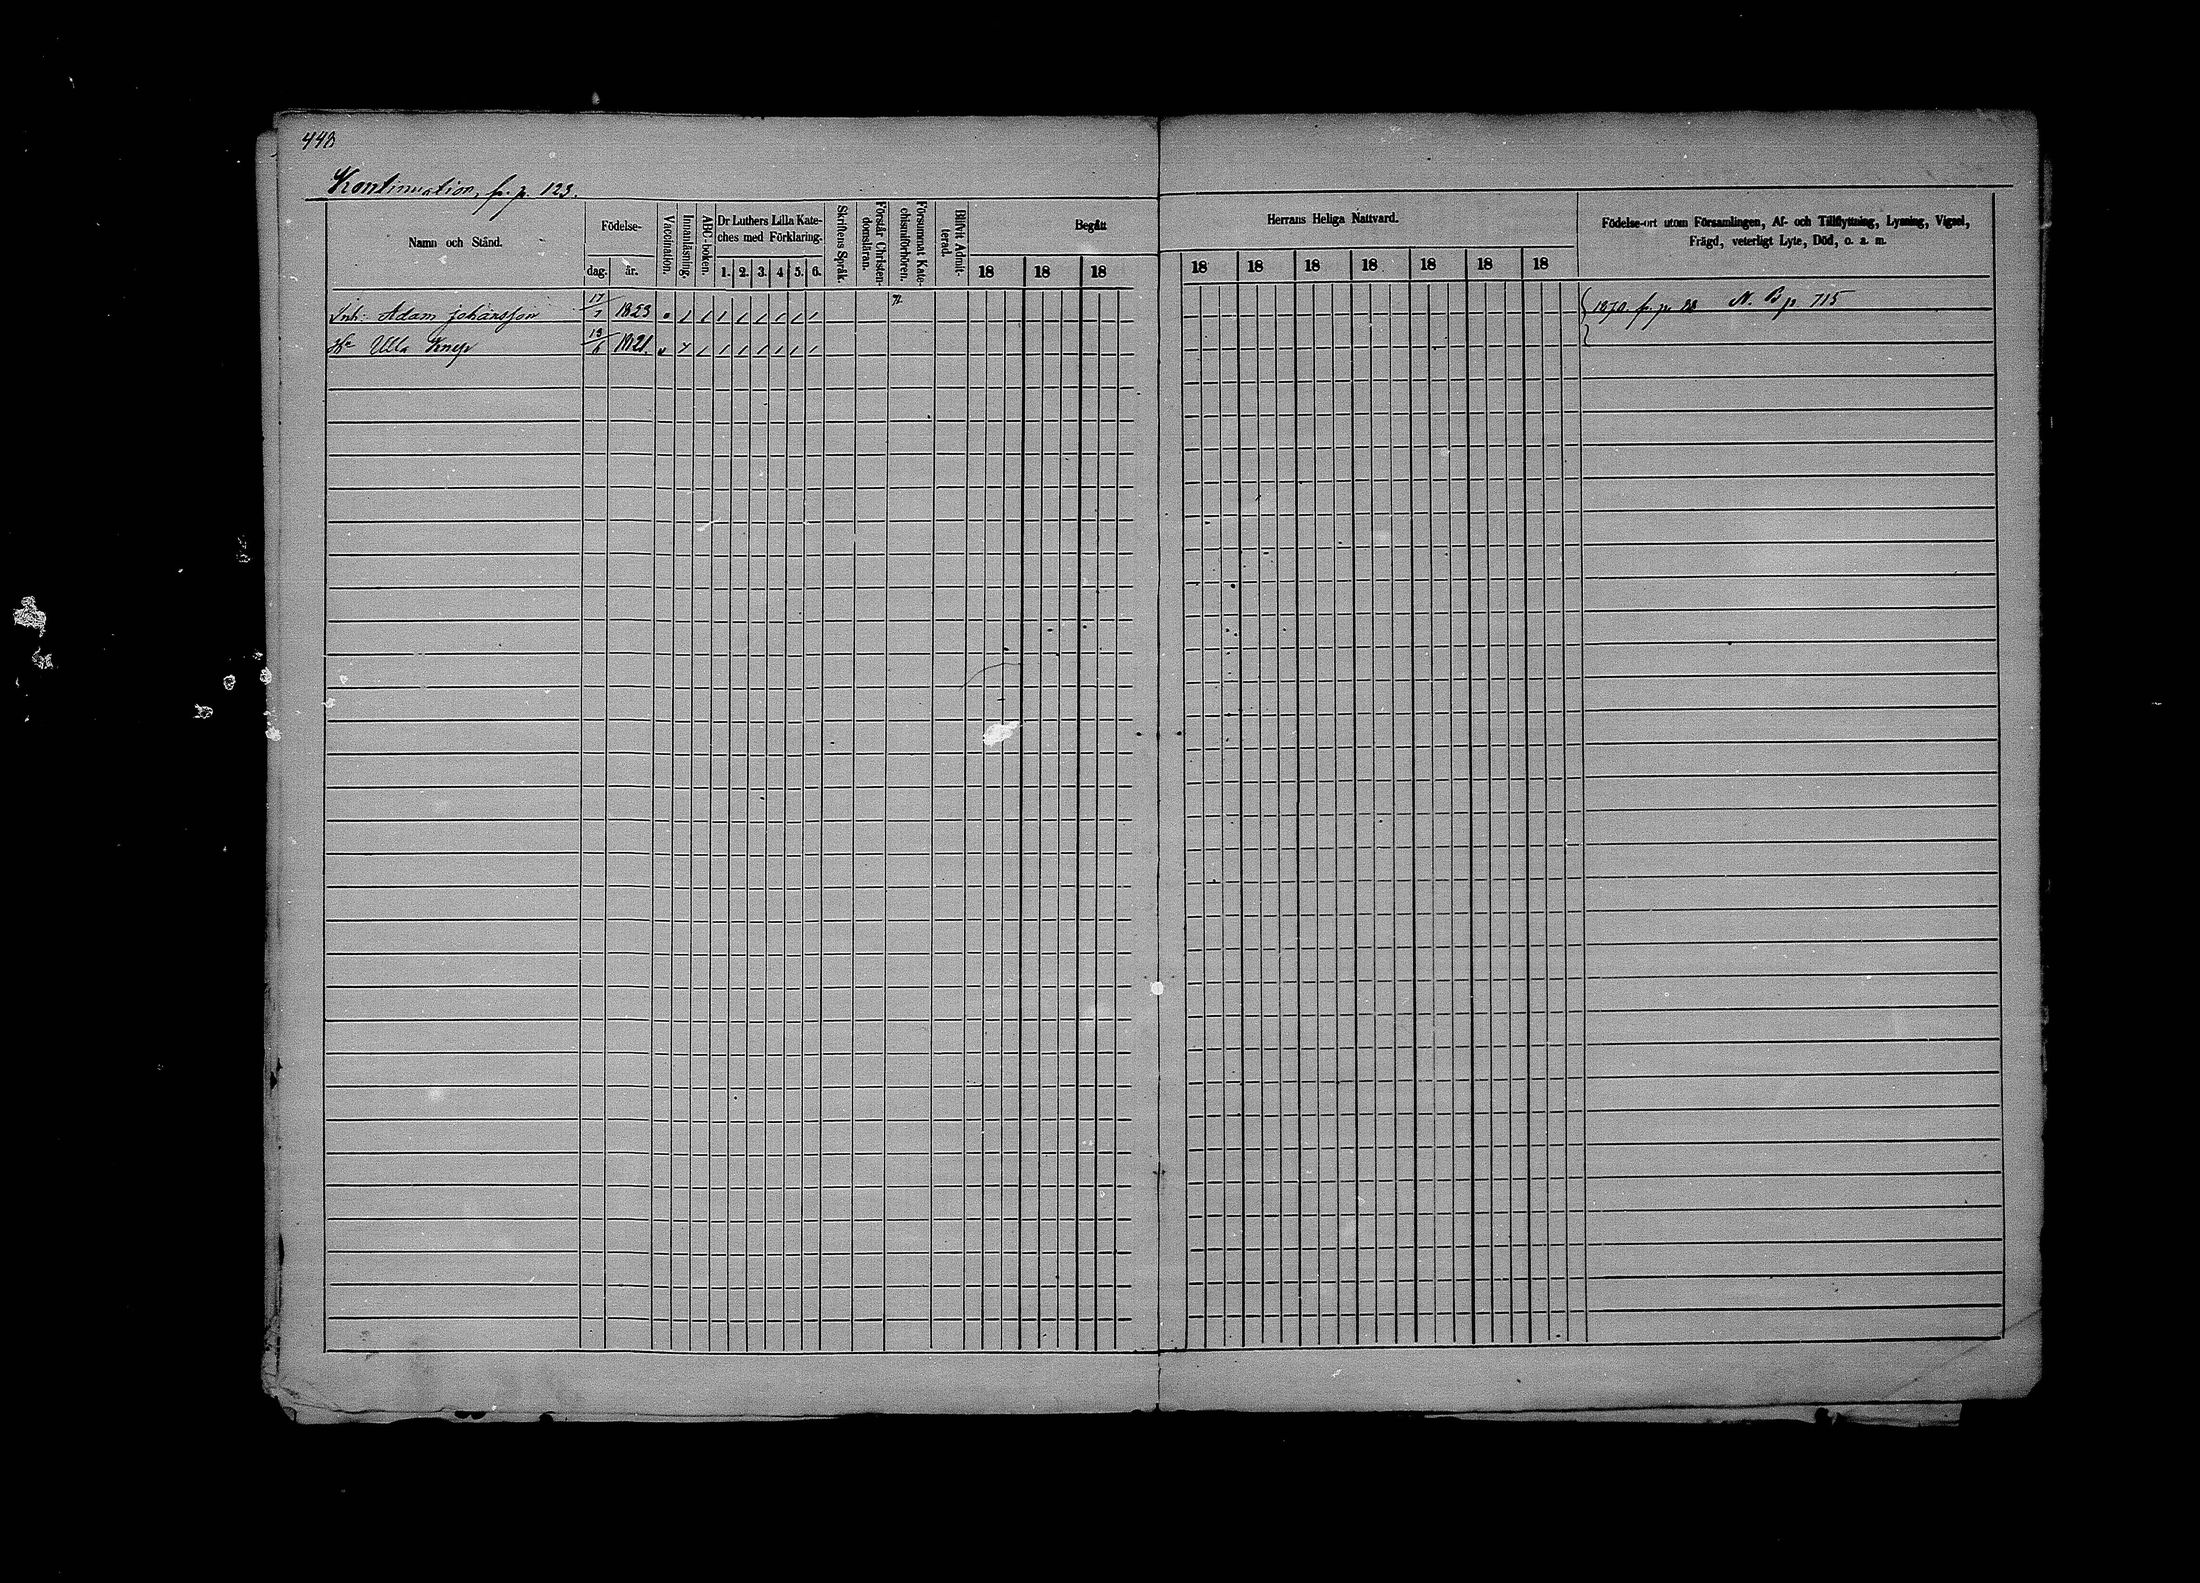 448
Kontinuation, fr. p. 123.
Namn och Stånd.
Födelse-
dag.
år.
Vaccination.
Innanläsning.
ABC-boken.
Dr Luthers Lilla Kate-
ches med Förklaring.
1. 2. 3. 4. 5. 6.
Skriftens Språk.
Förstår Christen-
domsläran.
Försummat Kate-
chismiförhören.
Blifvit Admit-
terad.
Begått
18 18 18
Herrans Heliga Nattvard.
18 18 18 18 18 18 18
Födelse-ort utom Församlingen, Af- och Tillflyttning, Lysning, Vigsel,
Frägd, veterligt Lyte, Död, o. a. m.
Inh. Adam Johansson 17/7 1823 1870. fr. p. 28 N. B p. 715
Hu Ulla Knep 1821.